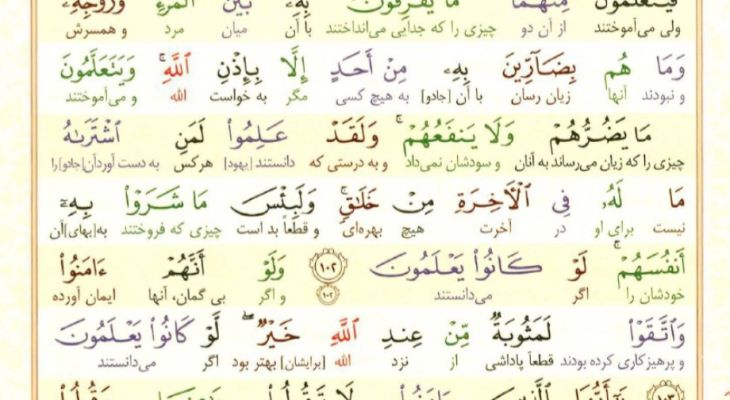 فَيَتَعَلَّمُونَ مِنْهُمَا مَا يُفَرِّقُونَ بِهِۦ بَيْنَ ٱلْمَرْءِ وَزَوْجِهِۦ
ولی می‌آموختند از آن دو چیزی را که جدایی می‌انداختند با آن میان مرد و همسرش
وَمَا هُم بِضَآرِّينَ بِهِۦ مِنْ أَحَدٍ إِلَّا بِإِذْنِ ٱللَّهِ ۚ وَيَتَعَلَّمُونَ
و نبودند آنها زیان رسان با آن [جادو] به هیچ کسی مگر به خواست الله و می‌آموختند
مَا يَضُرُّهُمْ وَلَا يَنفَعُهُمْ ۚ وَلَقَدْ عَلِمُوا۟ لَمَنِ ٱشْتَرَىٰهُ
چیزی را که زیان می‌رساند به آنان و سودشان نمی‌داد و به درستی که دانستند [یهود] هرکس به دست آوردآن[جادو]را
مَا لَهُۥ فِى ٱلْأَخِرَةِ مِنْ خَلَٰقٍ ۚ وَلَبِئْسَ مَا شَرَوْا۟ بِهِۦٓ
نیست برای او در آخرت هیچ بهره‌ای و قطعاً بد است چیزی که فروختند به[بهای]آن
أَنفُسَهُمْ ۚ لَوْ كَانُوا۟ يَعْلَمُونَ ١٠٢ وَلَوْ أَنَّهُمْ ءَامَنُوا۟
خودشان را اگر می‌دانستند ۱۰۲ و اگر بی گمان، آنها ایمان آورده
وَٱتَّقَوْا۟ لَمَثُوبَةٌ مِّنْ عِندِ ٱللَّهِ خَيْرٌ ۖ لَّوْ كَانُوا۟ يَعْلَمُونَ
و پرهیزکاری کرده بودند قطعاً پاداشی از نزد الله [برایشان] بهتر بود اگر می‌دانستند
١٠٣ يَٰٓأَيُّهَا ٱلَّذِينَ ءَامَنُوا۟ لَا تَقُولُوا۟ رَٰعِنَا وَقُولُوا۟